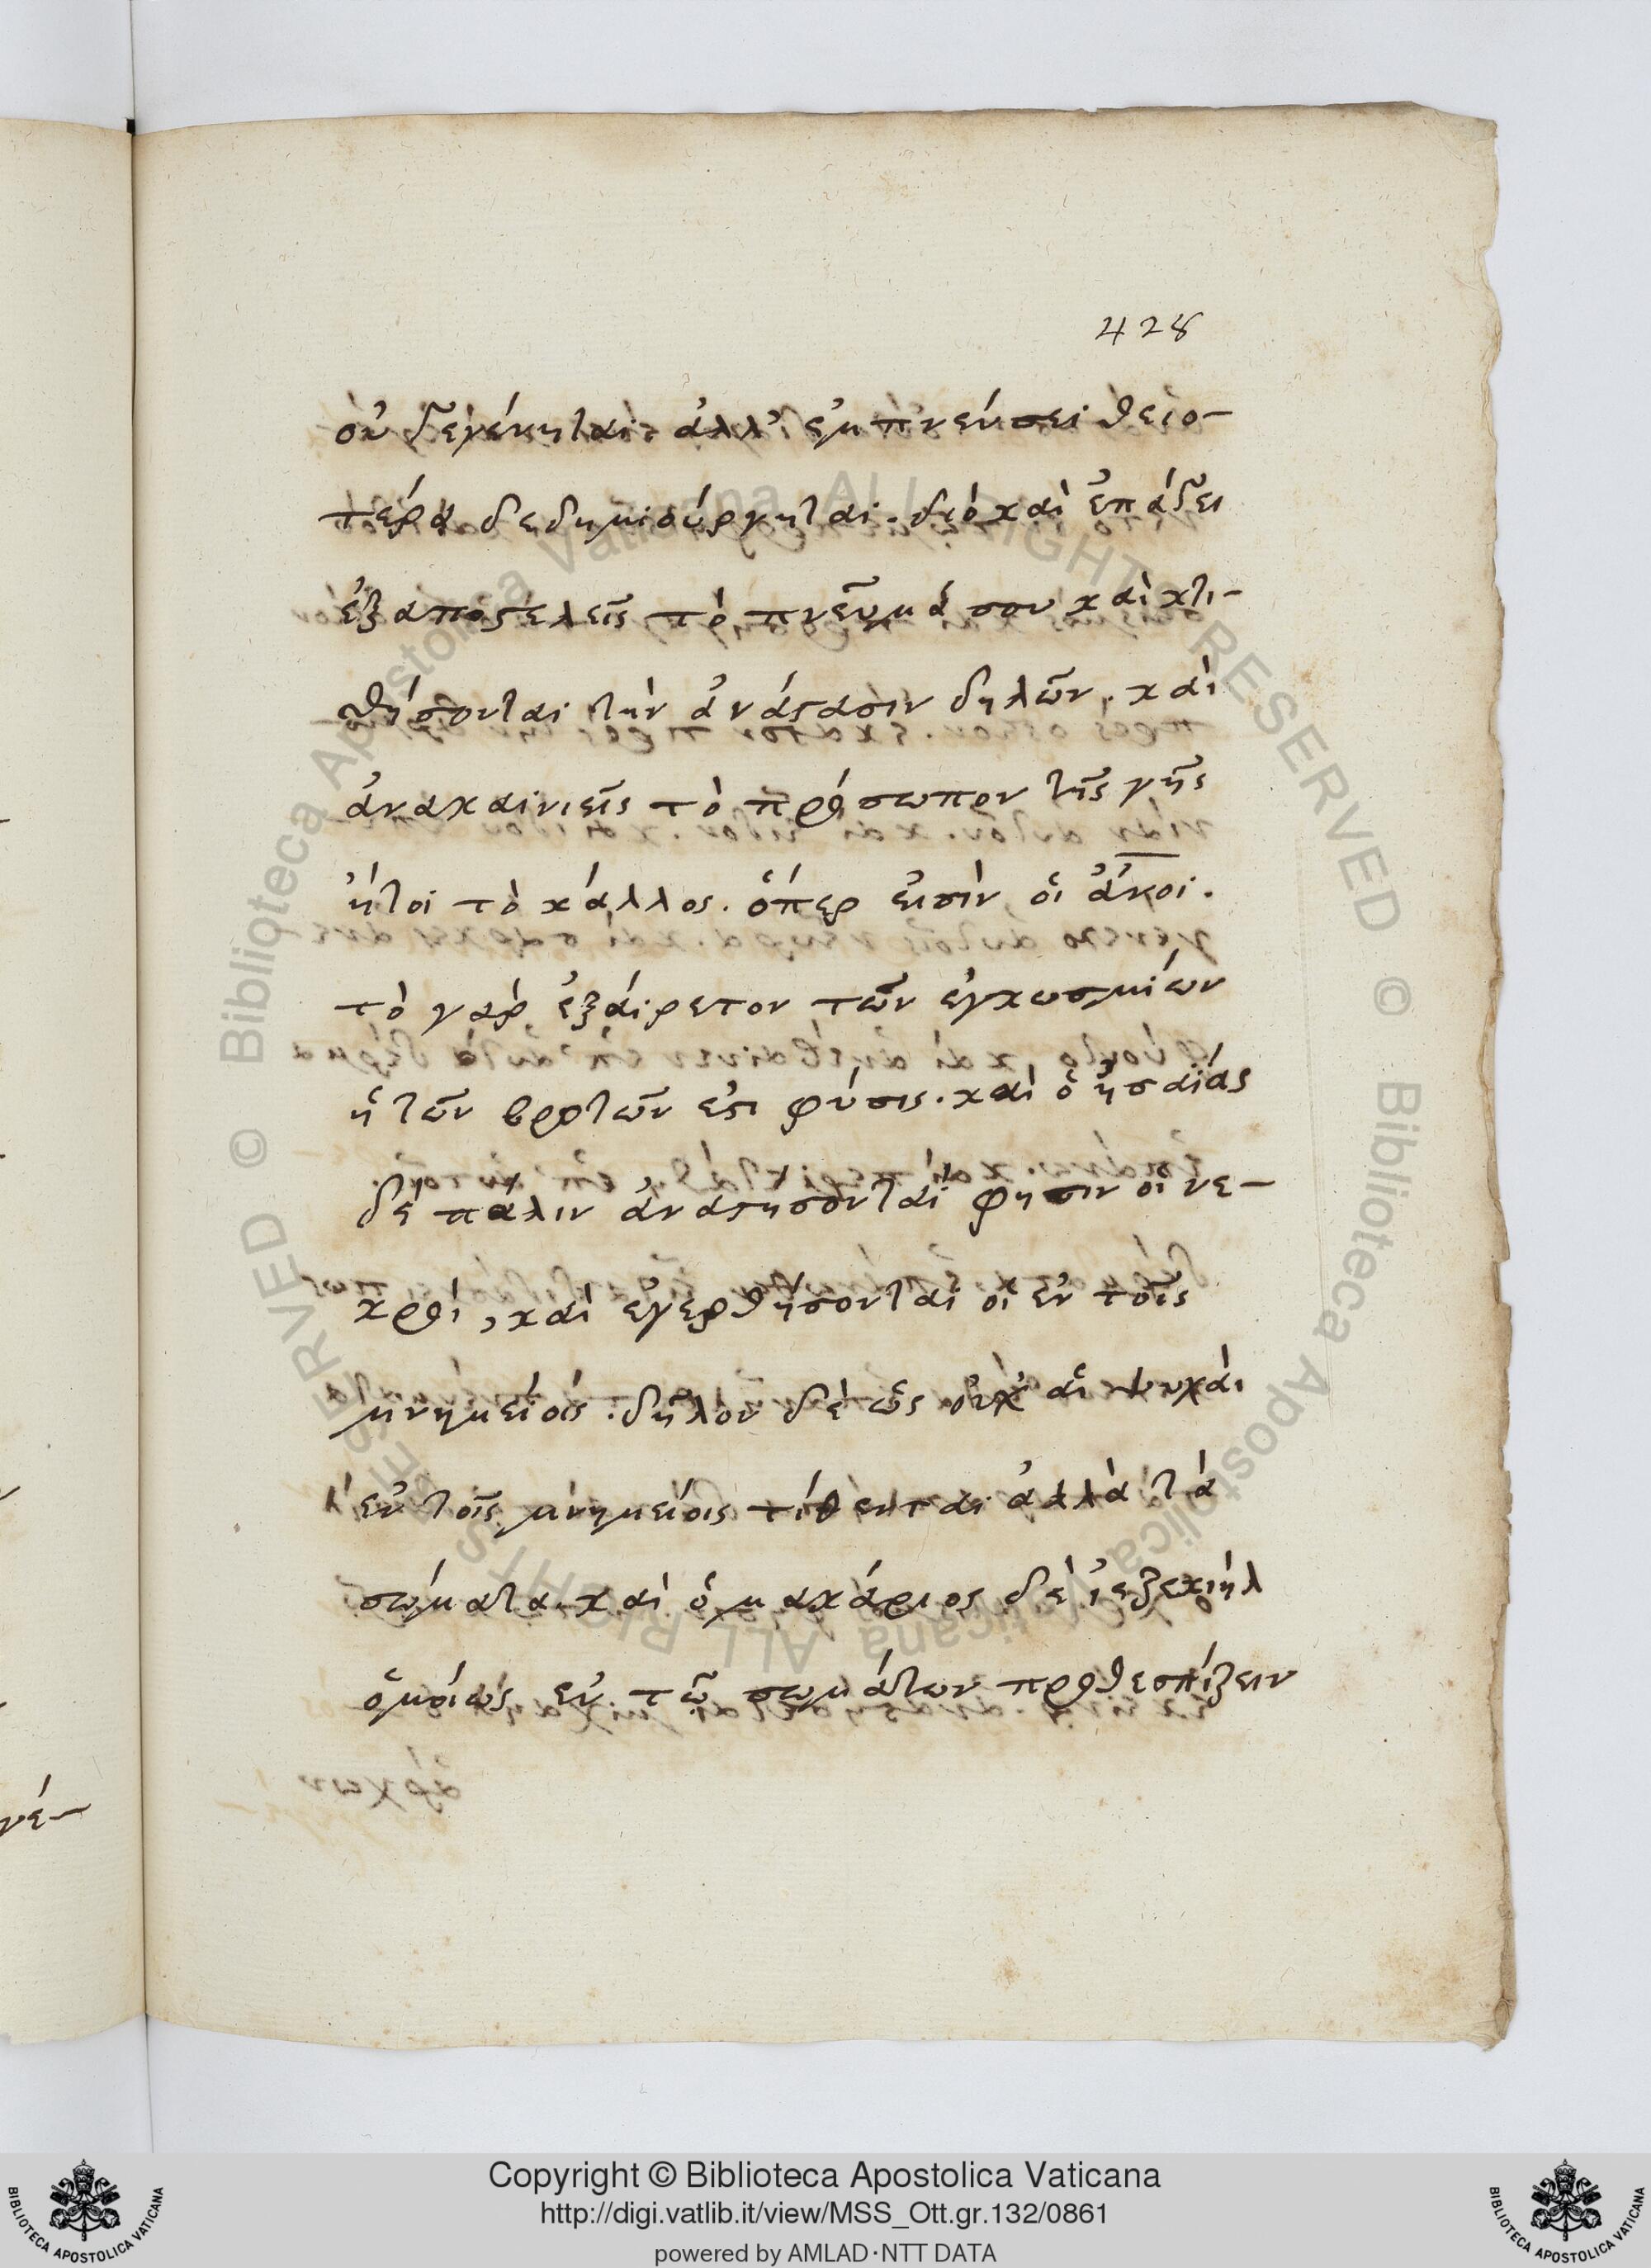 428
οὐ γεγένηται· ἀλλ' ἐμπνεύσει θειο-
τέρα δεδημιούργηται. διὸ καὶ ἐπάδει
ἐξαποστελεῖς τὸ πνεῦμά σου καὶ κτι-
θήσονται τὴν ἀνάστασιν δηλῶν. καὶ
ἀνακαινιεῖς τὸ πρόσωπον τῆς γῆς
ἤτοι τὸ κάλλος. ὅπερ εἰσὶν οἱ ἄνοι.
τὸ γὰρ ἐξαίρετον τῶν ἐγκοσμίων
ἡ τῶν βροτῶν ἐστι φύσις. καὶ ὁ ἠσαΐας
δὲ πάλιν ἀναστήσονται φησιν οἱ νε-
κροί, καὶ ἐγερθήσονται οἱ ἐν τοῖς
μνημείοις. δῆλον δὲ ὡς οὐκ αἱ ψυχαὶ
ἐν τοῖς μνημείοις τίθενται ἀλλὰ τὰ
σώματα. καὶ ὁ μακάριος δὲ ἰεζεκιὴλ
ὁμοίως ἐκ τῶν σωμάτων προθεσπίζειν
νέ-
Copyright © Biblioteca Apostolica Vaticana
http://digi.vatlib.it/view/MSS_Ott.gr.132/0861
powered by AMLAD·NTT DATA
BIBLIOTECA APOSTOLICA VATICANA
BIBLIOTECA APOSTOLICA VATICANA